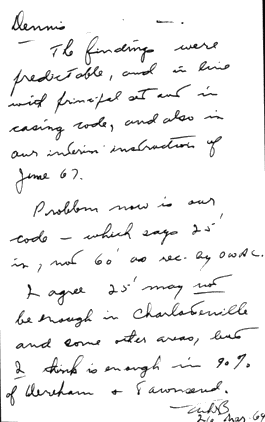 Dennis
The findings were
predictable, and in line
with principal set out in
casing code, and also in
our interim instruction of
June 67.
Problem now is our
code – which says 25'
in, not 60' as rec. by OWRC.
I agree 25' may not
be enough in Charlotteville
and some other areas, but
I think is enough in 90%
of Dereham & Townsend.
26 Mar. 69